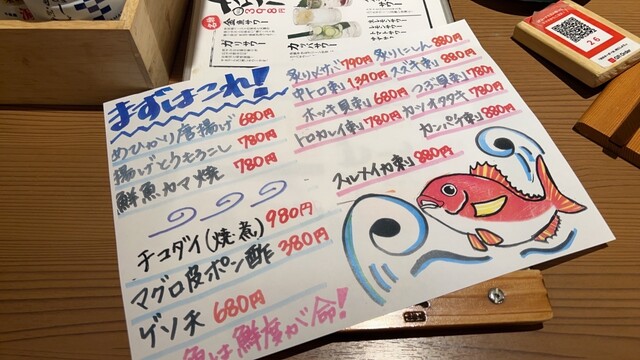 398円
金魚サワー
ガリサワー
カッパサワー
26
まずはこれ!
めひかり唐揚げ 680円
揚げとうもろこし 780円
鮮魚カマ焼 780円
チコダイ(焼煮) 980円
マグロ皮ポン酢 380円
ゲソ天 680円
魚は鮮度が命!
炙りメサバ 790円 炙りにしん 880円
中トロ刺 1,390円 スズキ刺 880円
ホッキ貝刺 680円 つぶ貝刺 780円
トロカレイ刺 780円 カツオタタキ 780円
カンパチ刺 880円
スルメイカ刺 880円